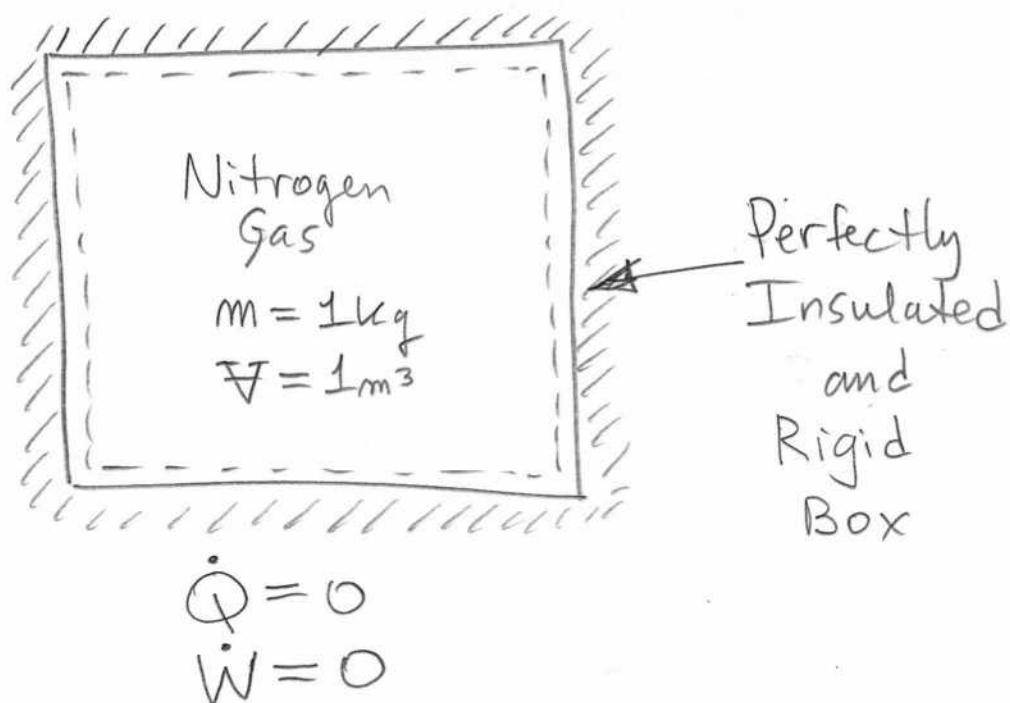 Nitrogen
Gas
m = 1kg
V̶ = 1m³
Perfectly
Insulated
and
Rigid
Box
Q̇ = 0
Ẇ = 0